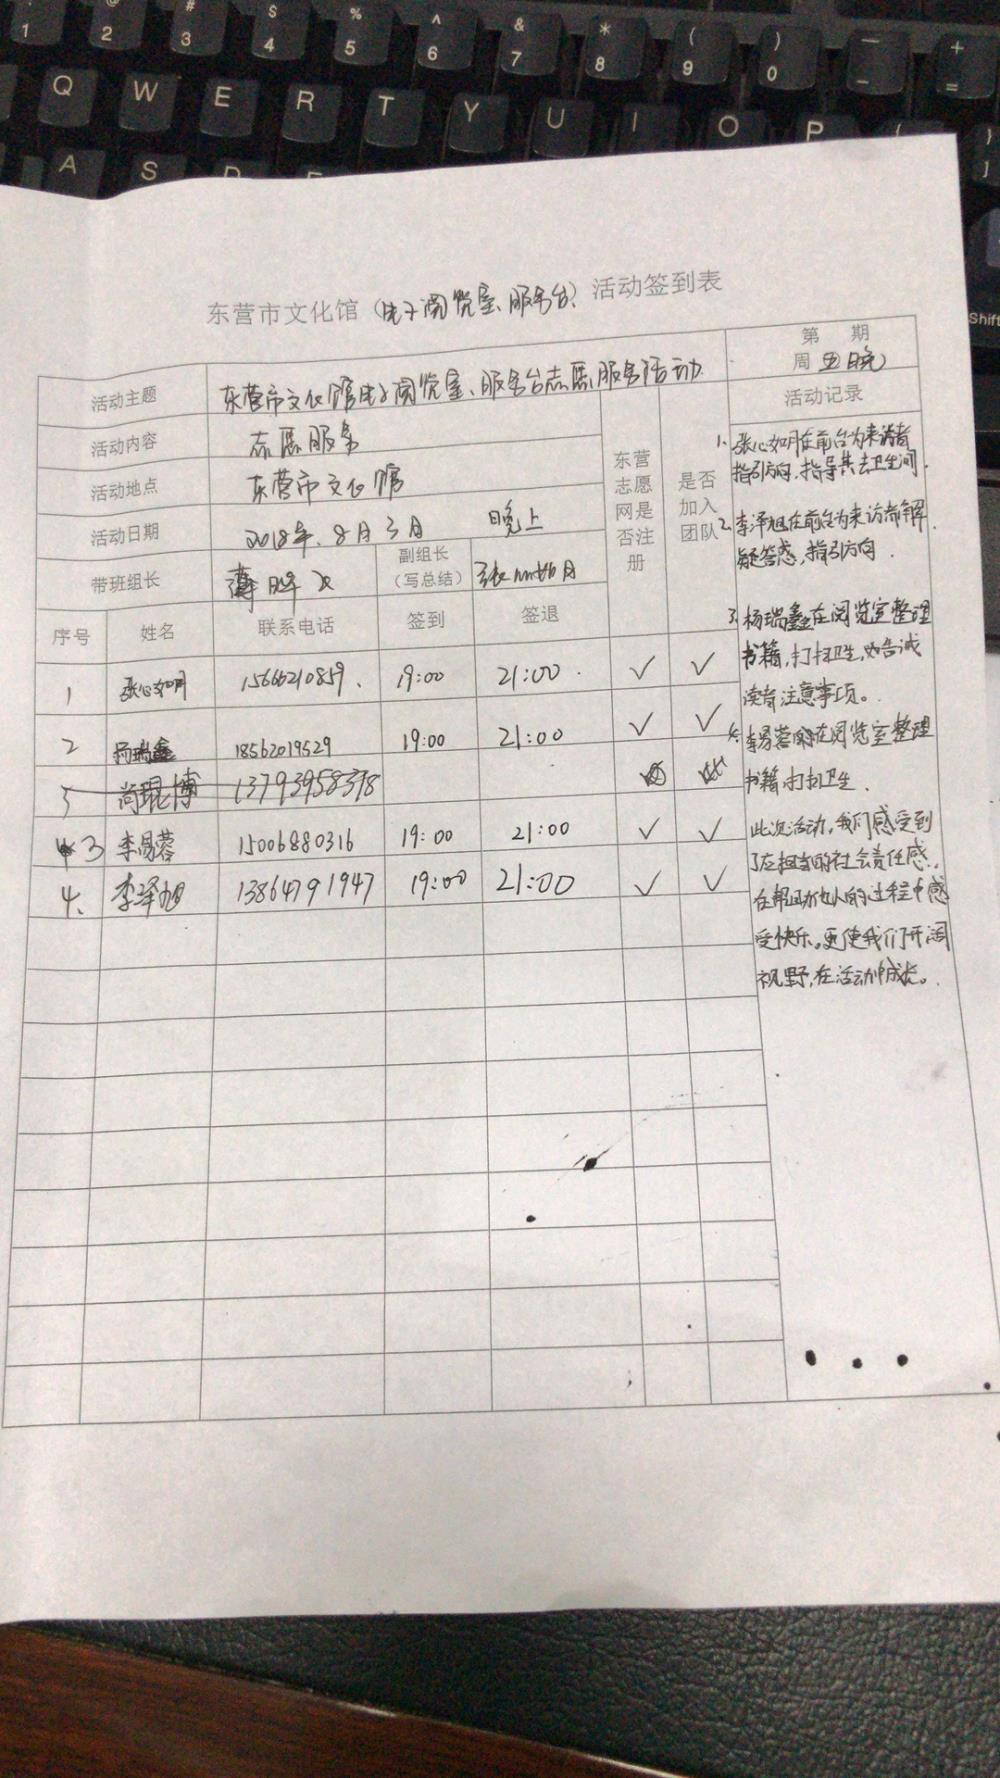 ! @ # $ % ^ & * ( ) — +
1 2 3 4 5 6 7 8 9 0 - =
Q W E R T Y U I O P {
A S D F
}
]
Shift
东营市文化馆(电子阅览室、服务台)活动签到表
第 期
周五晚
活动主题 东营市文化馆电子阅览室、服务台志愿服务活动
活动内容 志愿服务
活动地点 东营市文化馆
活动日期 2018年.8月3日 晚上
带班组长 副组长(写总结) 张心如月
东营志愿网是否注册
是否加入团队
活动记录
序号 姓名 联系电话 签到 签退
1 张心如月 15666210859. 19:00 21:00. ✓ ✓
2 杨瑞鑫 18562019529 19:00 21:00 ✓ ✓
尚琨博 13793958378
3 李易蓉 15006880316 19:00 21:00 ✓ ✓
4. 李泽旭 13864791947 19:00 21:00 ✓ ✓
1. 张心如月在前台为来访者
指引方向,指导其去卫生间.
2. 李泽旭在前台为来访者解
疑答惑,指引方向.
3. 杨瑞鑫在阅览室整理
书籍,打扫卫生,告诫
读者注意事项。
4. 李易蓉在阅览室整理
书籍,打扫卫生.
此次活动,我们感受到
了应担当的社会责任感.
在帮助他人的过程中感
受快乐。更使我们开阔
视野,在活动中成长。